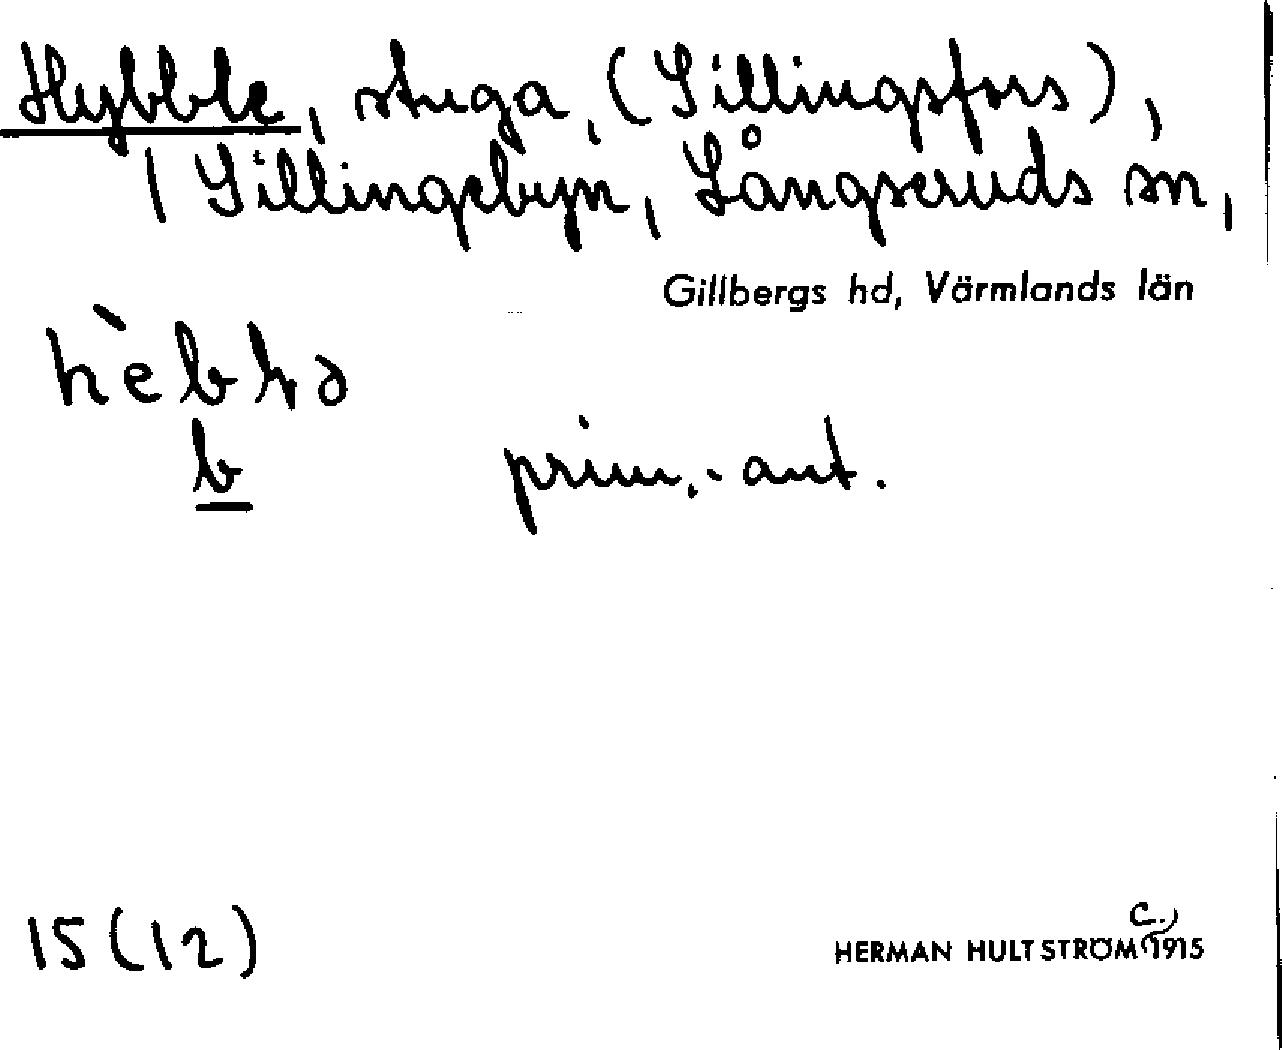 Hybble, stuga, (Sillingsfors),
/ Sillingebyn, Långseruds sn,
Gillbergs hd, Värmlands län
b
prim.-ant.
15 (12)
c.
HERMAN HULTSTRÖM 1915